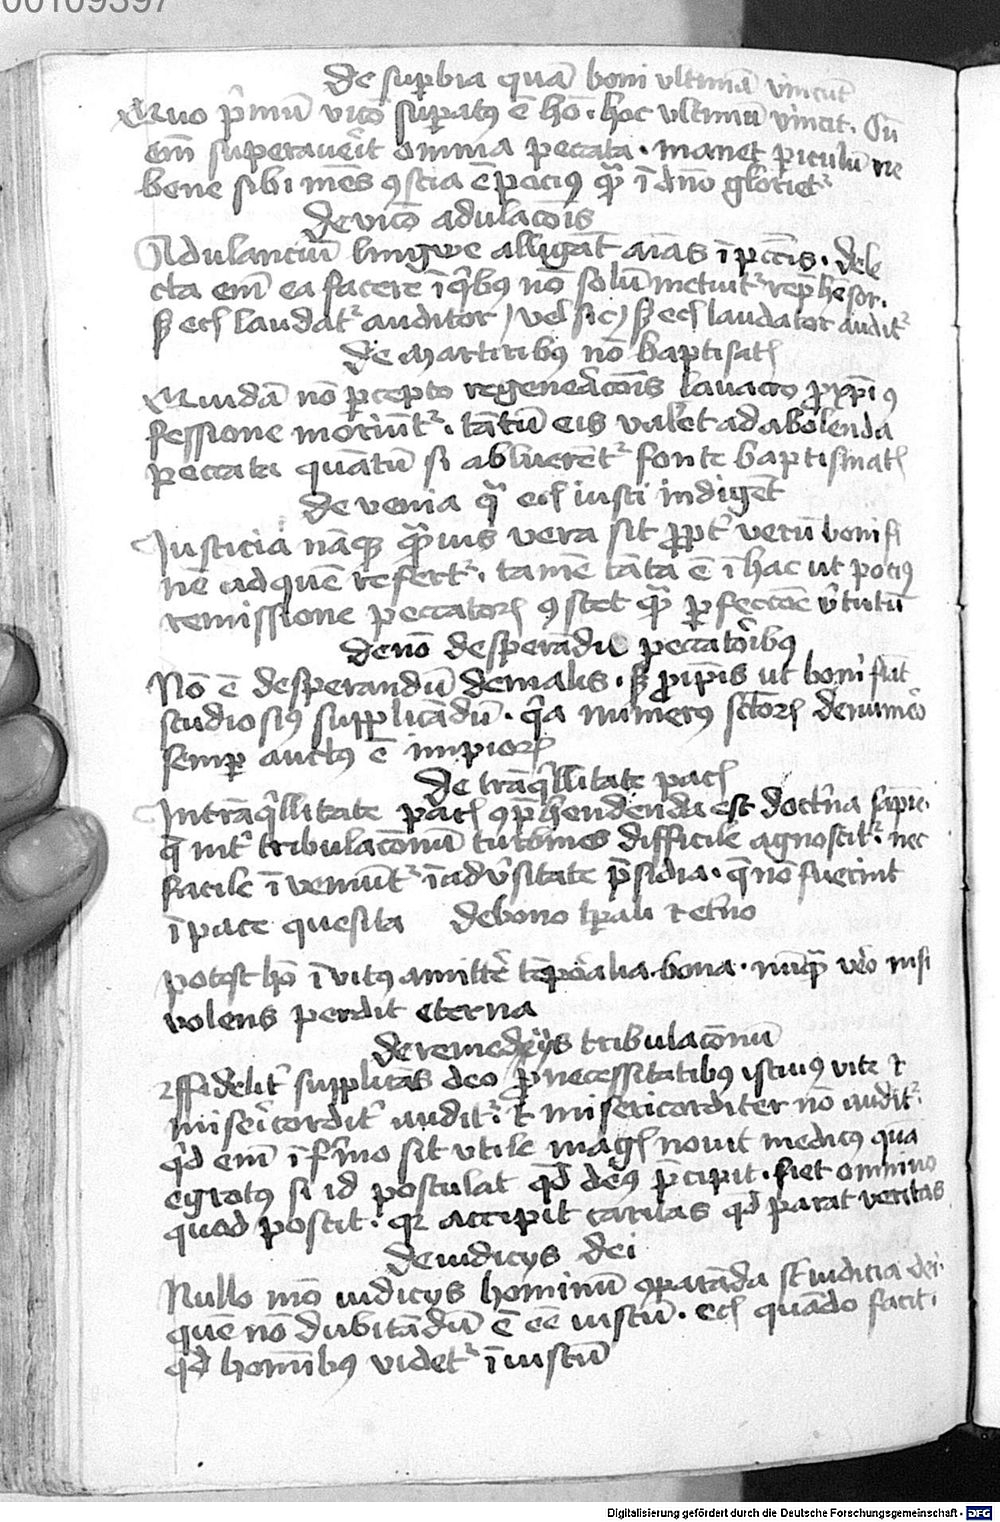 00109397
De sup̄bia quā boni vltimā vincūt
Quo p̄mū vicō suꝑatꝰ ē hō · hoc vltimū vincit · Cū
em̄ superauerit omnia peccata · manet ꝑiculū ne
bene sibi mēs ꝯscia ē pociꝰ qͣ ī dn̄o glorietᷣ
De vicō adulacōis
Adulanciū lingwe alligāt aīas ī pctīs · dele
cta em̄ ea facere ī qͥbꝰ nō solū metuitᷣ rep̄hēsor ·
sꝫ eciā laudatᷣ auditor / vel sic / sꝫ eciā laudator auditᷣ
De martiribꝰ nō baptisatis
Quidā nō ꝑcepto regenerac̄ois lauacro ꝓ xp̄i ꝯ
fessione moriūtᷣ · tātū eis valet ad abolenda
peccata quātū si abluerētᷣ fonte baptismatis
De venia qͣ eciā iusti indigēt
Iusticia nāqꝫ qͣuis vera sit ꝓpt̾ verū boni fi
nē ad quē refertᷣ · tamē tāta ē ī hac ut pociꝰ
remissione peccatorꝝ ꝯstet qͣ ꝑfectōe v̾tutū
De nō desperādis peccatoribꝰ
Nō ē desperandū de malis · sꝫ ꝓ ip̄is ut boni fiāt
studiosiꝰ supplicādū · qͥa numerꝰ sctōrꝝ de numero
semꝑ auctꝰ ē impiorꝝ
De trāqͥllitate pacis
In trāqͥllitate pacis ꝯp̄hendenda est doctͥna sapīe ·
q̄ int̾ tribulacōnū turbines difficile agnoscitᷣ · nec
facile īveniūtᷣ ī adv̾sitate p̄sidia · q̄ nō fuerint
ī pace quesita De bono tp̄ali ⁊ et̾no
Potest hō īvitꝰ amitte̾ tēporalia bona · nūqͣ vero nisi
volens perdit eterna
De remedijs tribulacōnū
Fidelit̾ supplicās deo ꝓ necessitatibꝰ istiꝰ vite ⁊
misericordit̾ auditᷣ · ⁊ misericorditer nō auditᷣ ·
qͥd em̄ īfirmo sit vtile magis nouit medicꝰ quā
egrotꝰ si id postulat qd̄ deꝰ p̄cipit · fiet omnino
quod poscit · qꝛ accipit caritas qd̄ parat veritas
De iudicijs dei
Nullo mō iudicijs hominū ꝯparāda sūt iudicia dei ·
quē nō dubitādū ē eē iustū · eciā quādo facit ·
qd̄ hominibꝰ videtᷣ īiustū
Digitalisierung gefördert durch die Deutsche Forschungsgemeinschaft - DFG